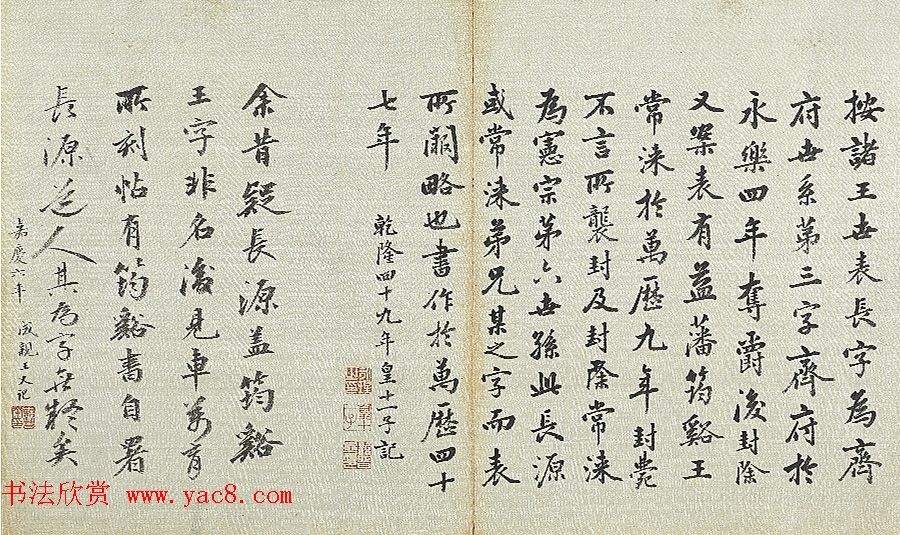 按諸王世表長字為齊
府世系第三字齊府於
永樂四年奪爵後封除
又案表有益藩筠谿王
常淶於萬歷九年封薨
不言所襲封及封除常淶
為憲宗第六世孫此長源
或常淶弟兄某之字而表
所闕略也書作於萬歷四十
七年
乾隆四十九年皇十一子記
余昔疑長源蓋筠谿
王字非名後見車萬育
所刻帖有筠谿書自署
長源道人其為字無疑矣
嘉慶六年 成親王又記
书法欣赏 www.yac8.com